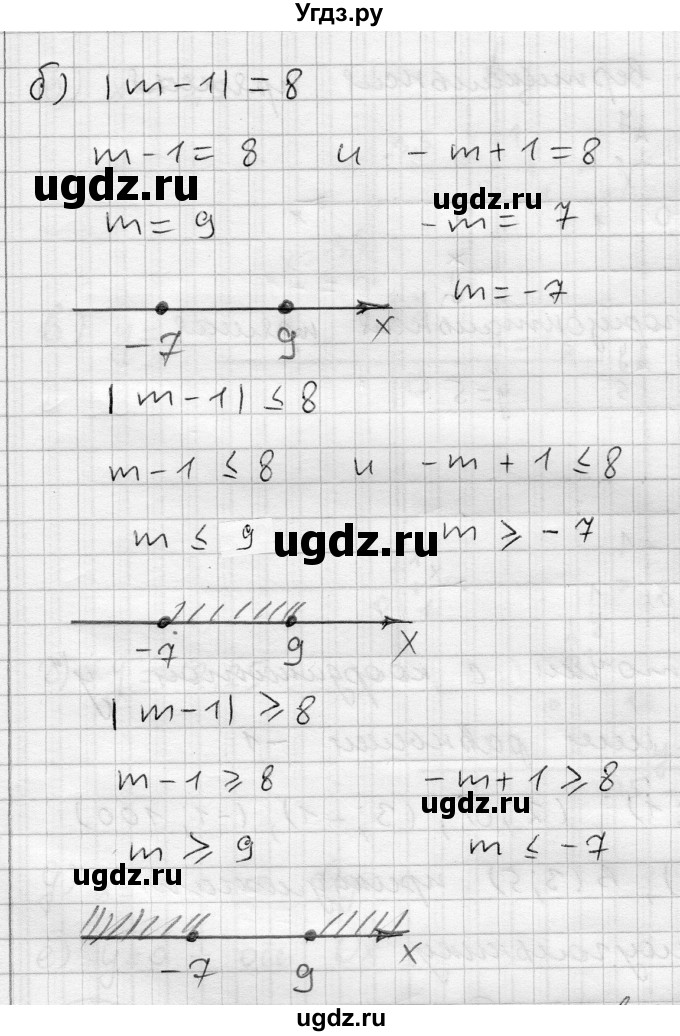 Угдз.ру
б) |m-1|=8
m-1= 8 и -m+1=8
ugdz.ru ugdz.ru
m= 9 -m= 7
m=-7
-7 9 x
|m-1| ≤ 8
m-1 ≤ 8 и -m+1 ≤ 8
m ≤ 9 ugdz.ru m ⩾ -7
-7 9 x
|m-1| ⩾ 8
m-1 ⩾ 8 -m+1 ⩾ 8
ugdz.ru
m ⩾ 9 m ≤ -7
ugdz.ru
-7 9 x
ugdz.ru